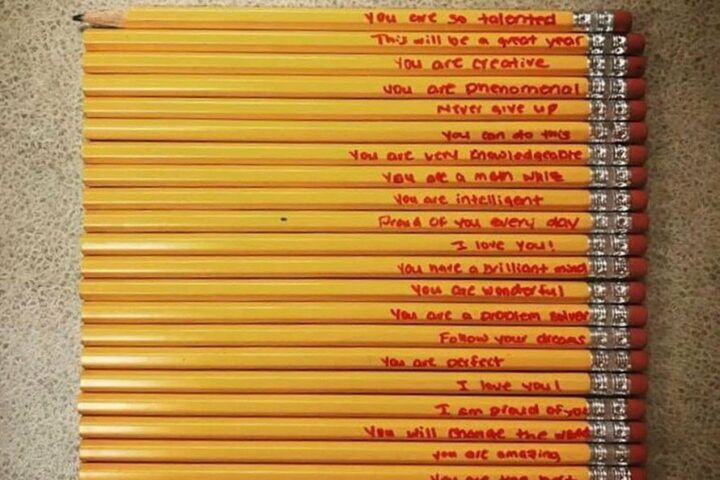 You are so talented
This will be a great year
You are creative
you are phenomenal
Never give up
you can do this
You are very knowledgeable
You are a math whiz
You are intelligent
Proud of you every day
I love you!
You have a brilliant mind
You are wonderful
You are a problem solver
Follow your dreams
You are perfect
I love you!
I am proud of you
You will change the world
you are amazing
You are the best